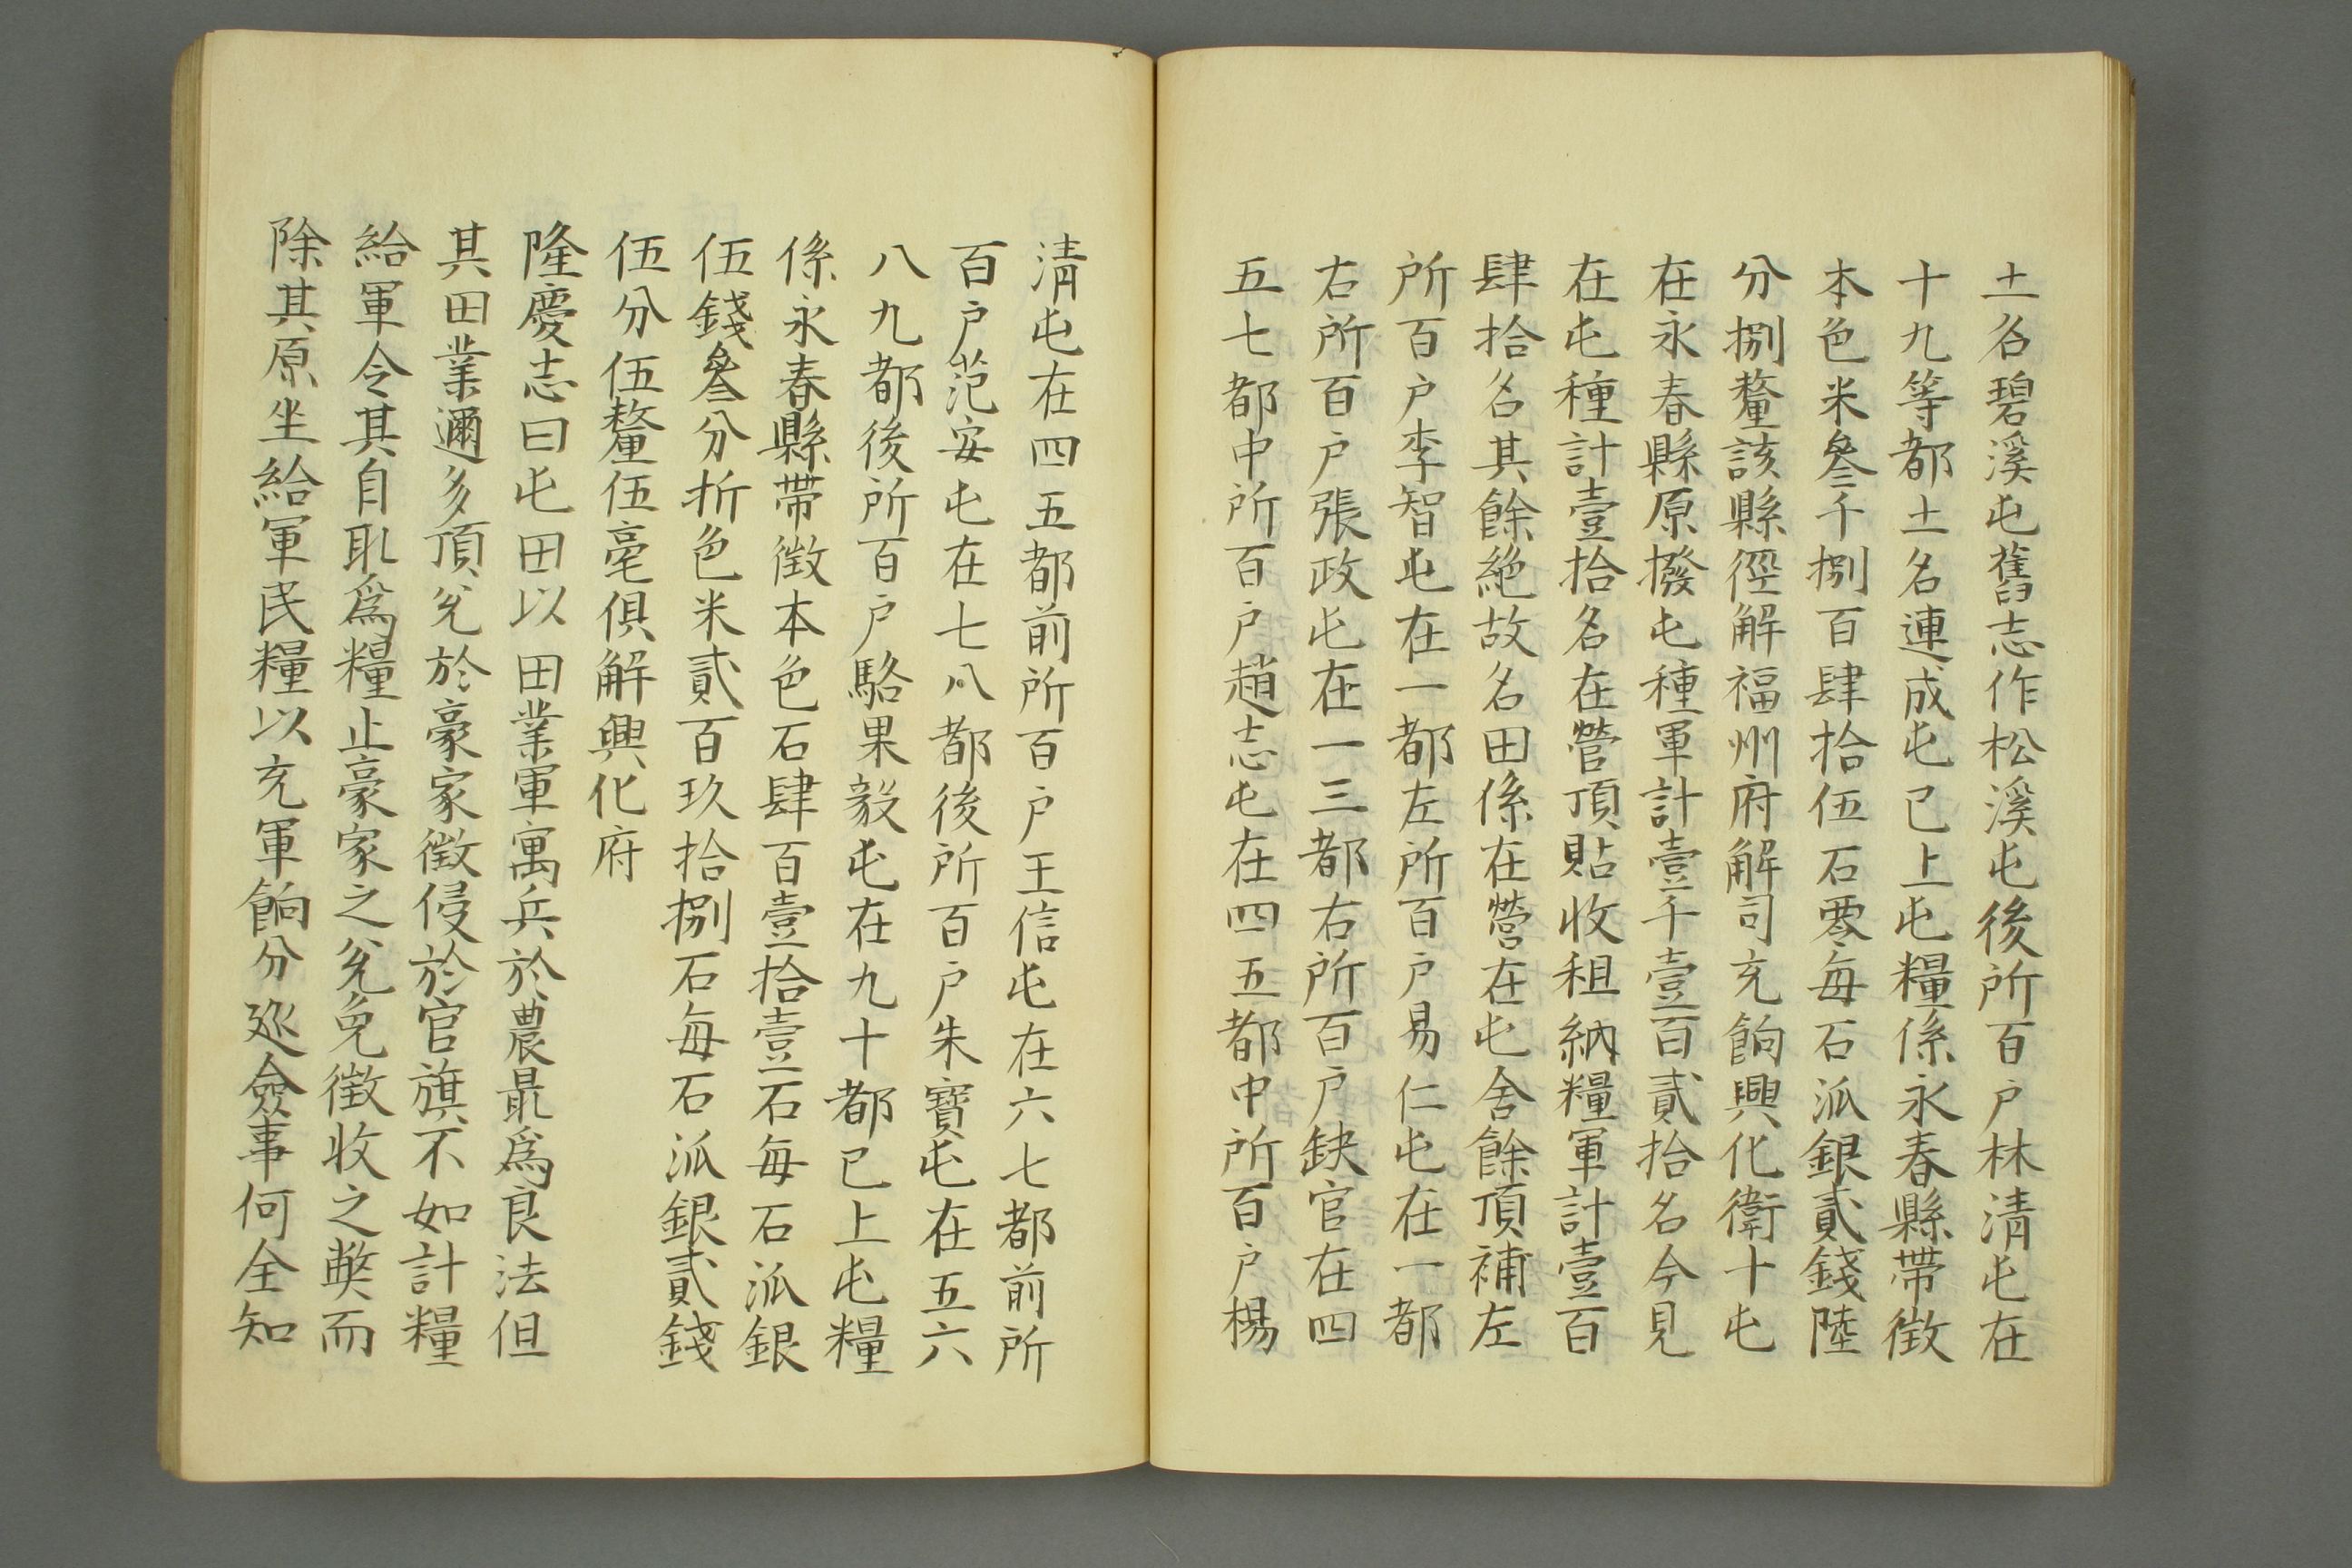 土名碧溪屯舊志作松溪屯後所百户林清屯在
十九等都土名連成屯已上屯糧係永春縣帶徵
本色米叄千捌百肆拾伍石零每石派銀貳錢陸
分捌釐該縣徑解福州府解司充餉興化衛十屯
在永春縣原撥屯種軍計壹千壹百貳拾名今見
在屯種計壹拾名在營頂貼收租納糧軍計壹百
肆拾名其餘絕故名田係在營在屯舍餘頂補左
所百户李智屯在一都左所百户易仁屯在一都
右所百户張政屯在一三都右所百户缺官在四
五七都中所百户趙志屯在四五都中所百户楊
清屯在四五都前所百户王信屯在六七都前所
百户范安屯在七八都後所百户朱寶屯在五六
八九都後所百户駱果毅屯在九十都已上屯糧
係永春縣帶徵本色石肆百壹拾壹石每石派銀
伍錢叄分折色米貳百玖拾捌石每石派銀貳錢
伍分伍釐伍毫俱解興化府
隆慶志曰屯田以田業軍寓兵於農最爲良法但
其田業邇多頂兊於豪家徵侵於官旗不如計糧
給軍令其自取爲糧止豪家之兊免徵收之獘而
除其原坐給軍民糧以充軍餉分廵僉事何全知